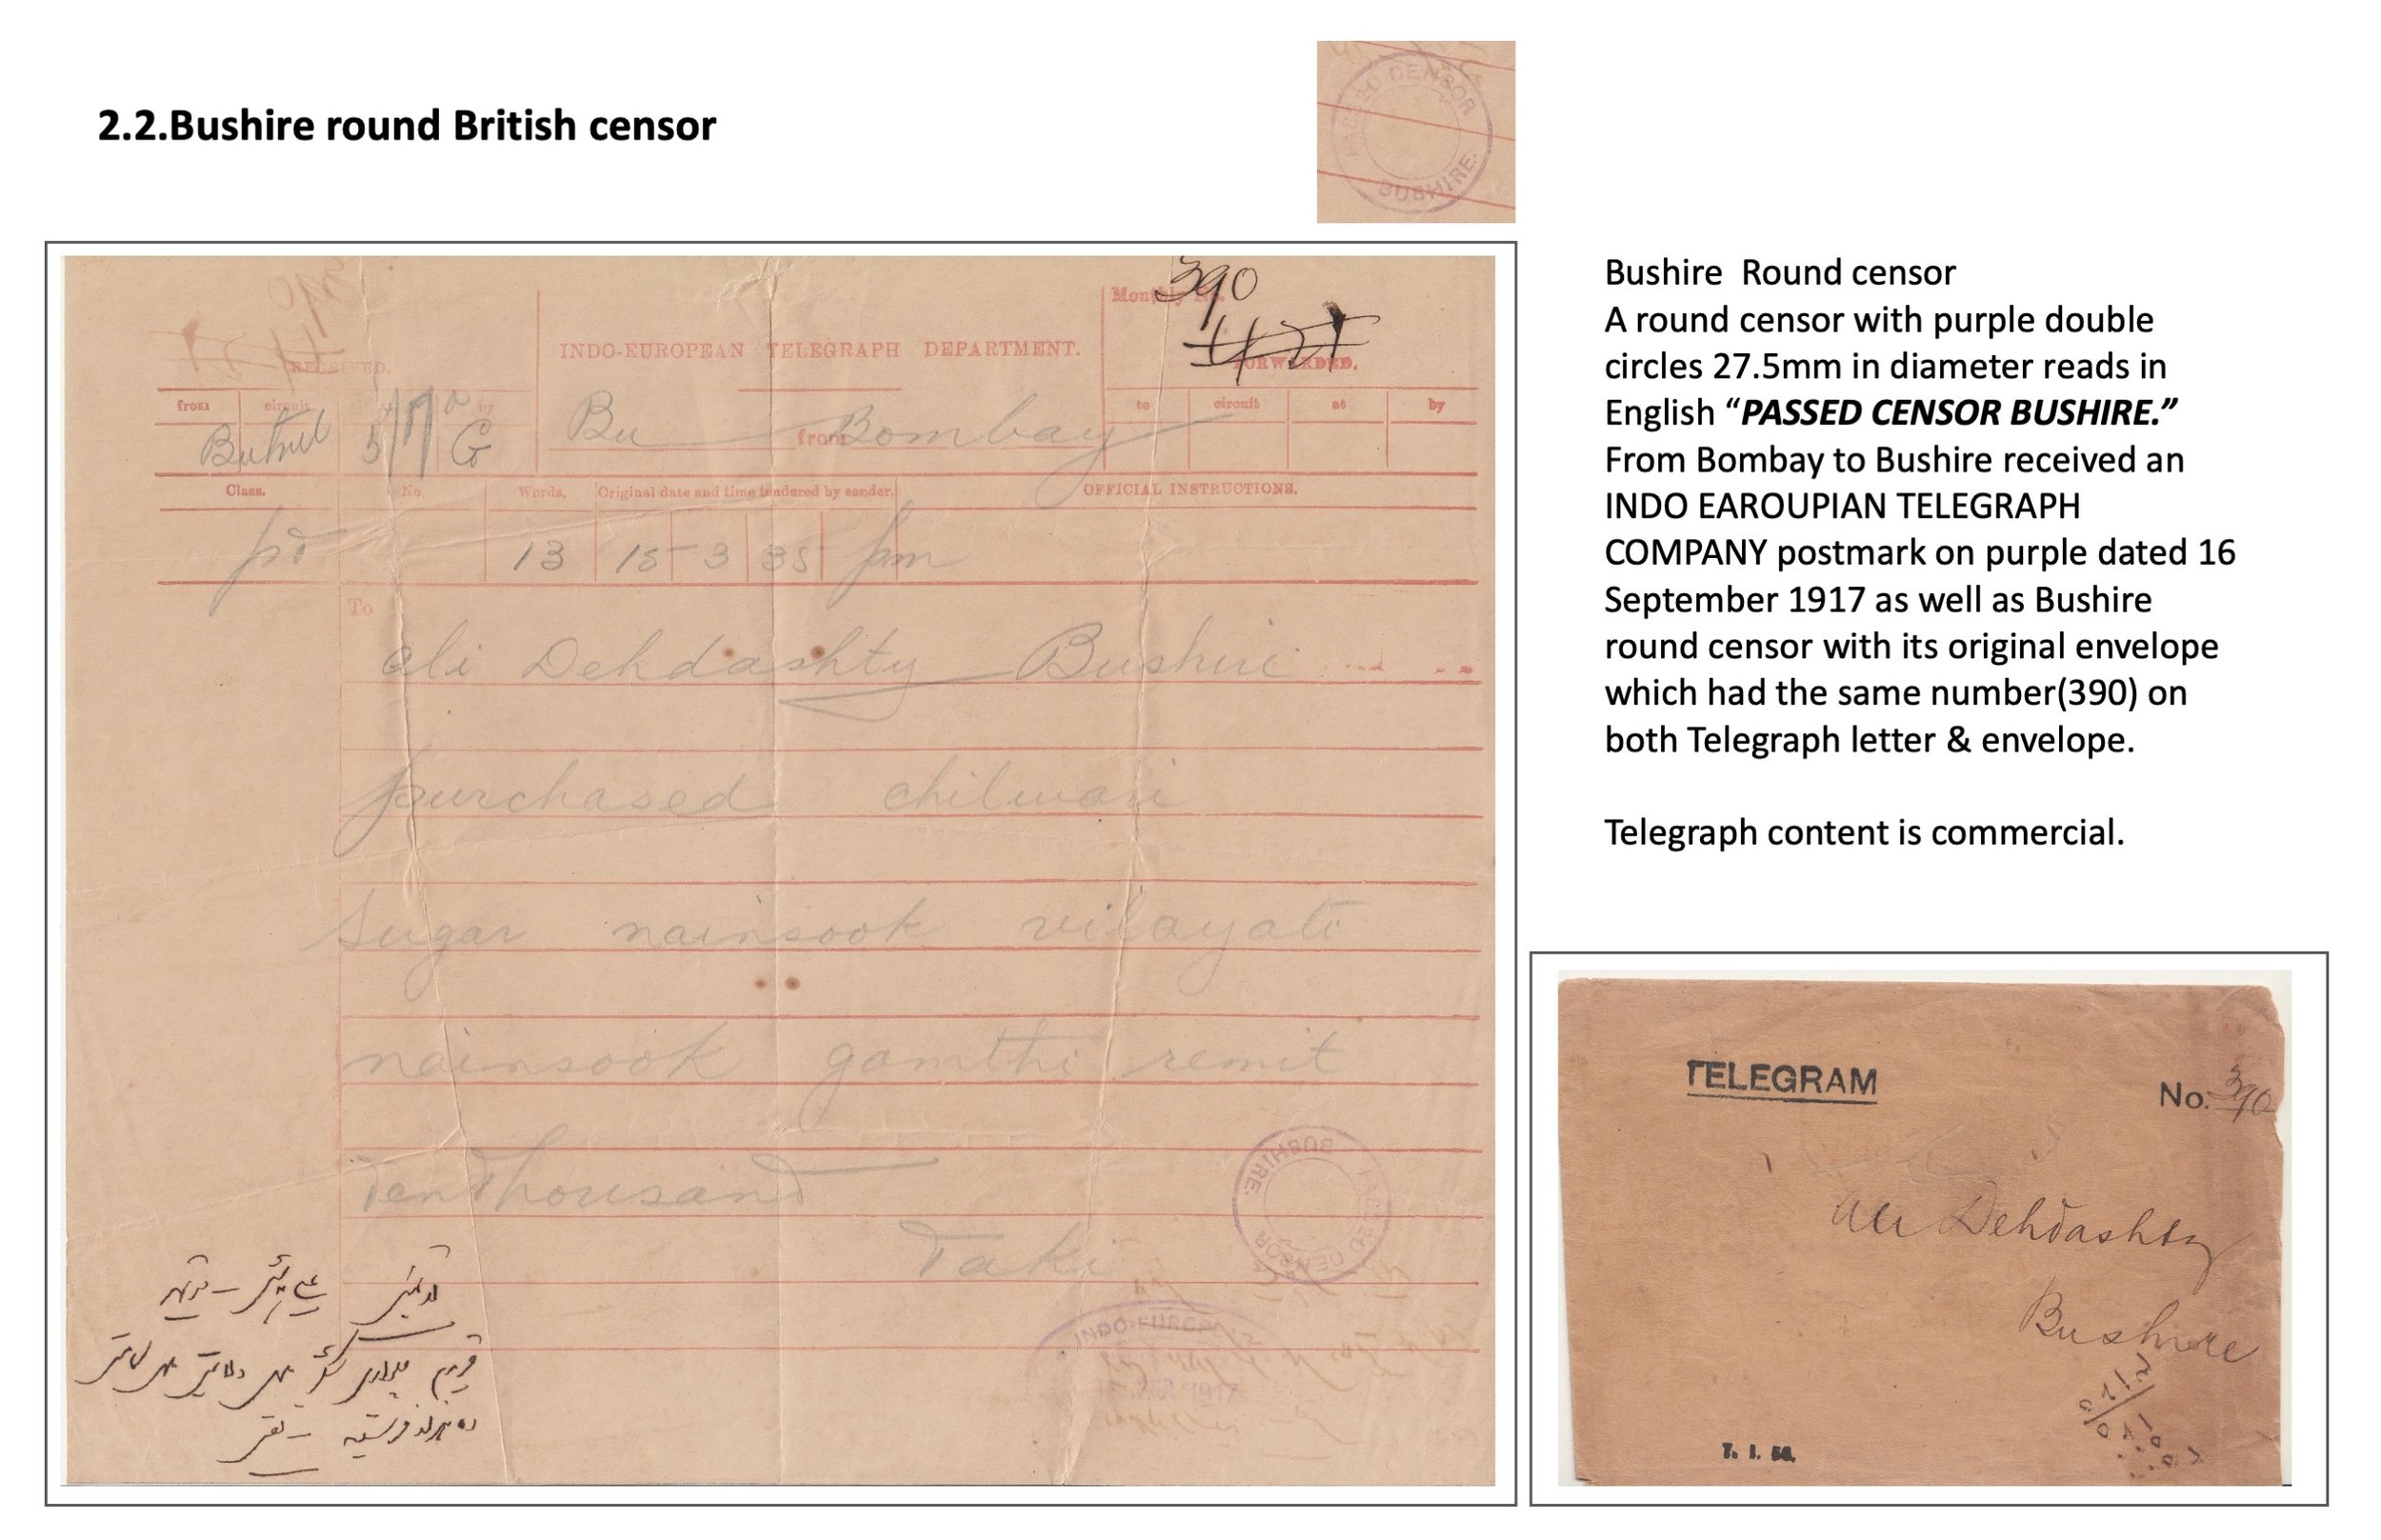 2.2.Bushire round British censor
PASSED CENSOR
BUSHIRE.
390
Monthly No.
INDO-EUROPEAN TELEGRAPH DEPARTMENT.
RECEIVED.
FORWARDED.
from circuit by
to circuit at by
G
Bu from Bombay
Class. No. Words. Original date and time tendered by sender. OFFICIAL INSTRUCTIONS.
13 15 3 35 pm
To
Ali Dehdashty Bushire
purchased chilwari
sugar nainsook vilayati
nainsook gamthi remit
Ten Thousand
Taki
PASSED CENSOR
BUSHIRE.
INDO-EUROPE
1917
Bushire Round censor
A round censor with purple double
circles 27.5mm in diameter reads in
English “PASSED CENSOR BUSHIRE.”
From Bombay to Bushire received an
INDO EAROUPIAN TELEGRAPH
COMPANY postmark on purple dated 16
September 1917 as well as Bushire
round censor with its original envelope
which had the same number(390) on
both Telegraph letter & envelope.
Telegraph content is commercial.
TELEGRAM
No. 390
Ali Dehdashty
Bushire
T. I. 56.